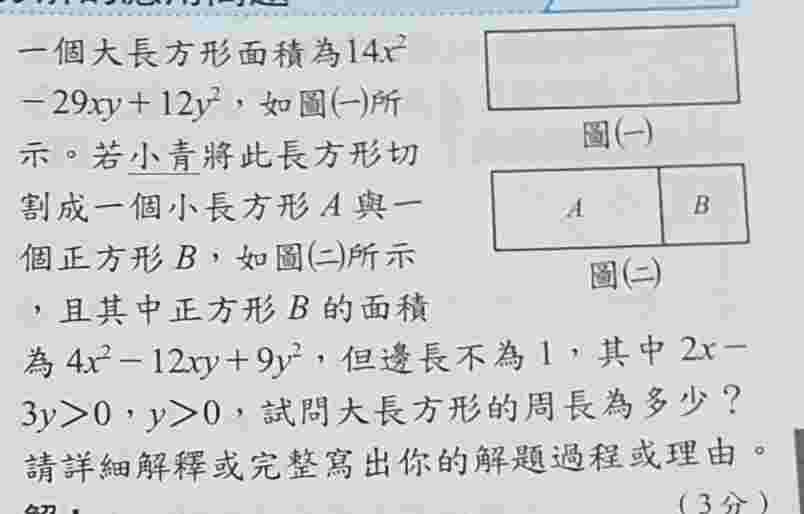 一個大長方形面積為14x²
－29xy＋12y²，如圖㈠所
示。若小青將此長方形切
割成一個小長方形 A 與一
個正方形 B，如圖㈡所示
，且其中正方形 B 的面積
為 4x²－12xy＋9y²，但邊長不為 1，其中 2x－
3y＞0，y＞0，試問大長方形的周長為多少？
請詳細解釋或完整寫出你的解題過程或理由。
（3 分）
圖㈠
A
B
圖㈡